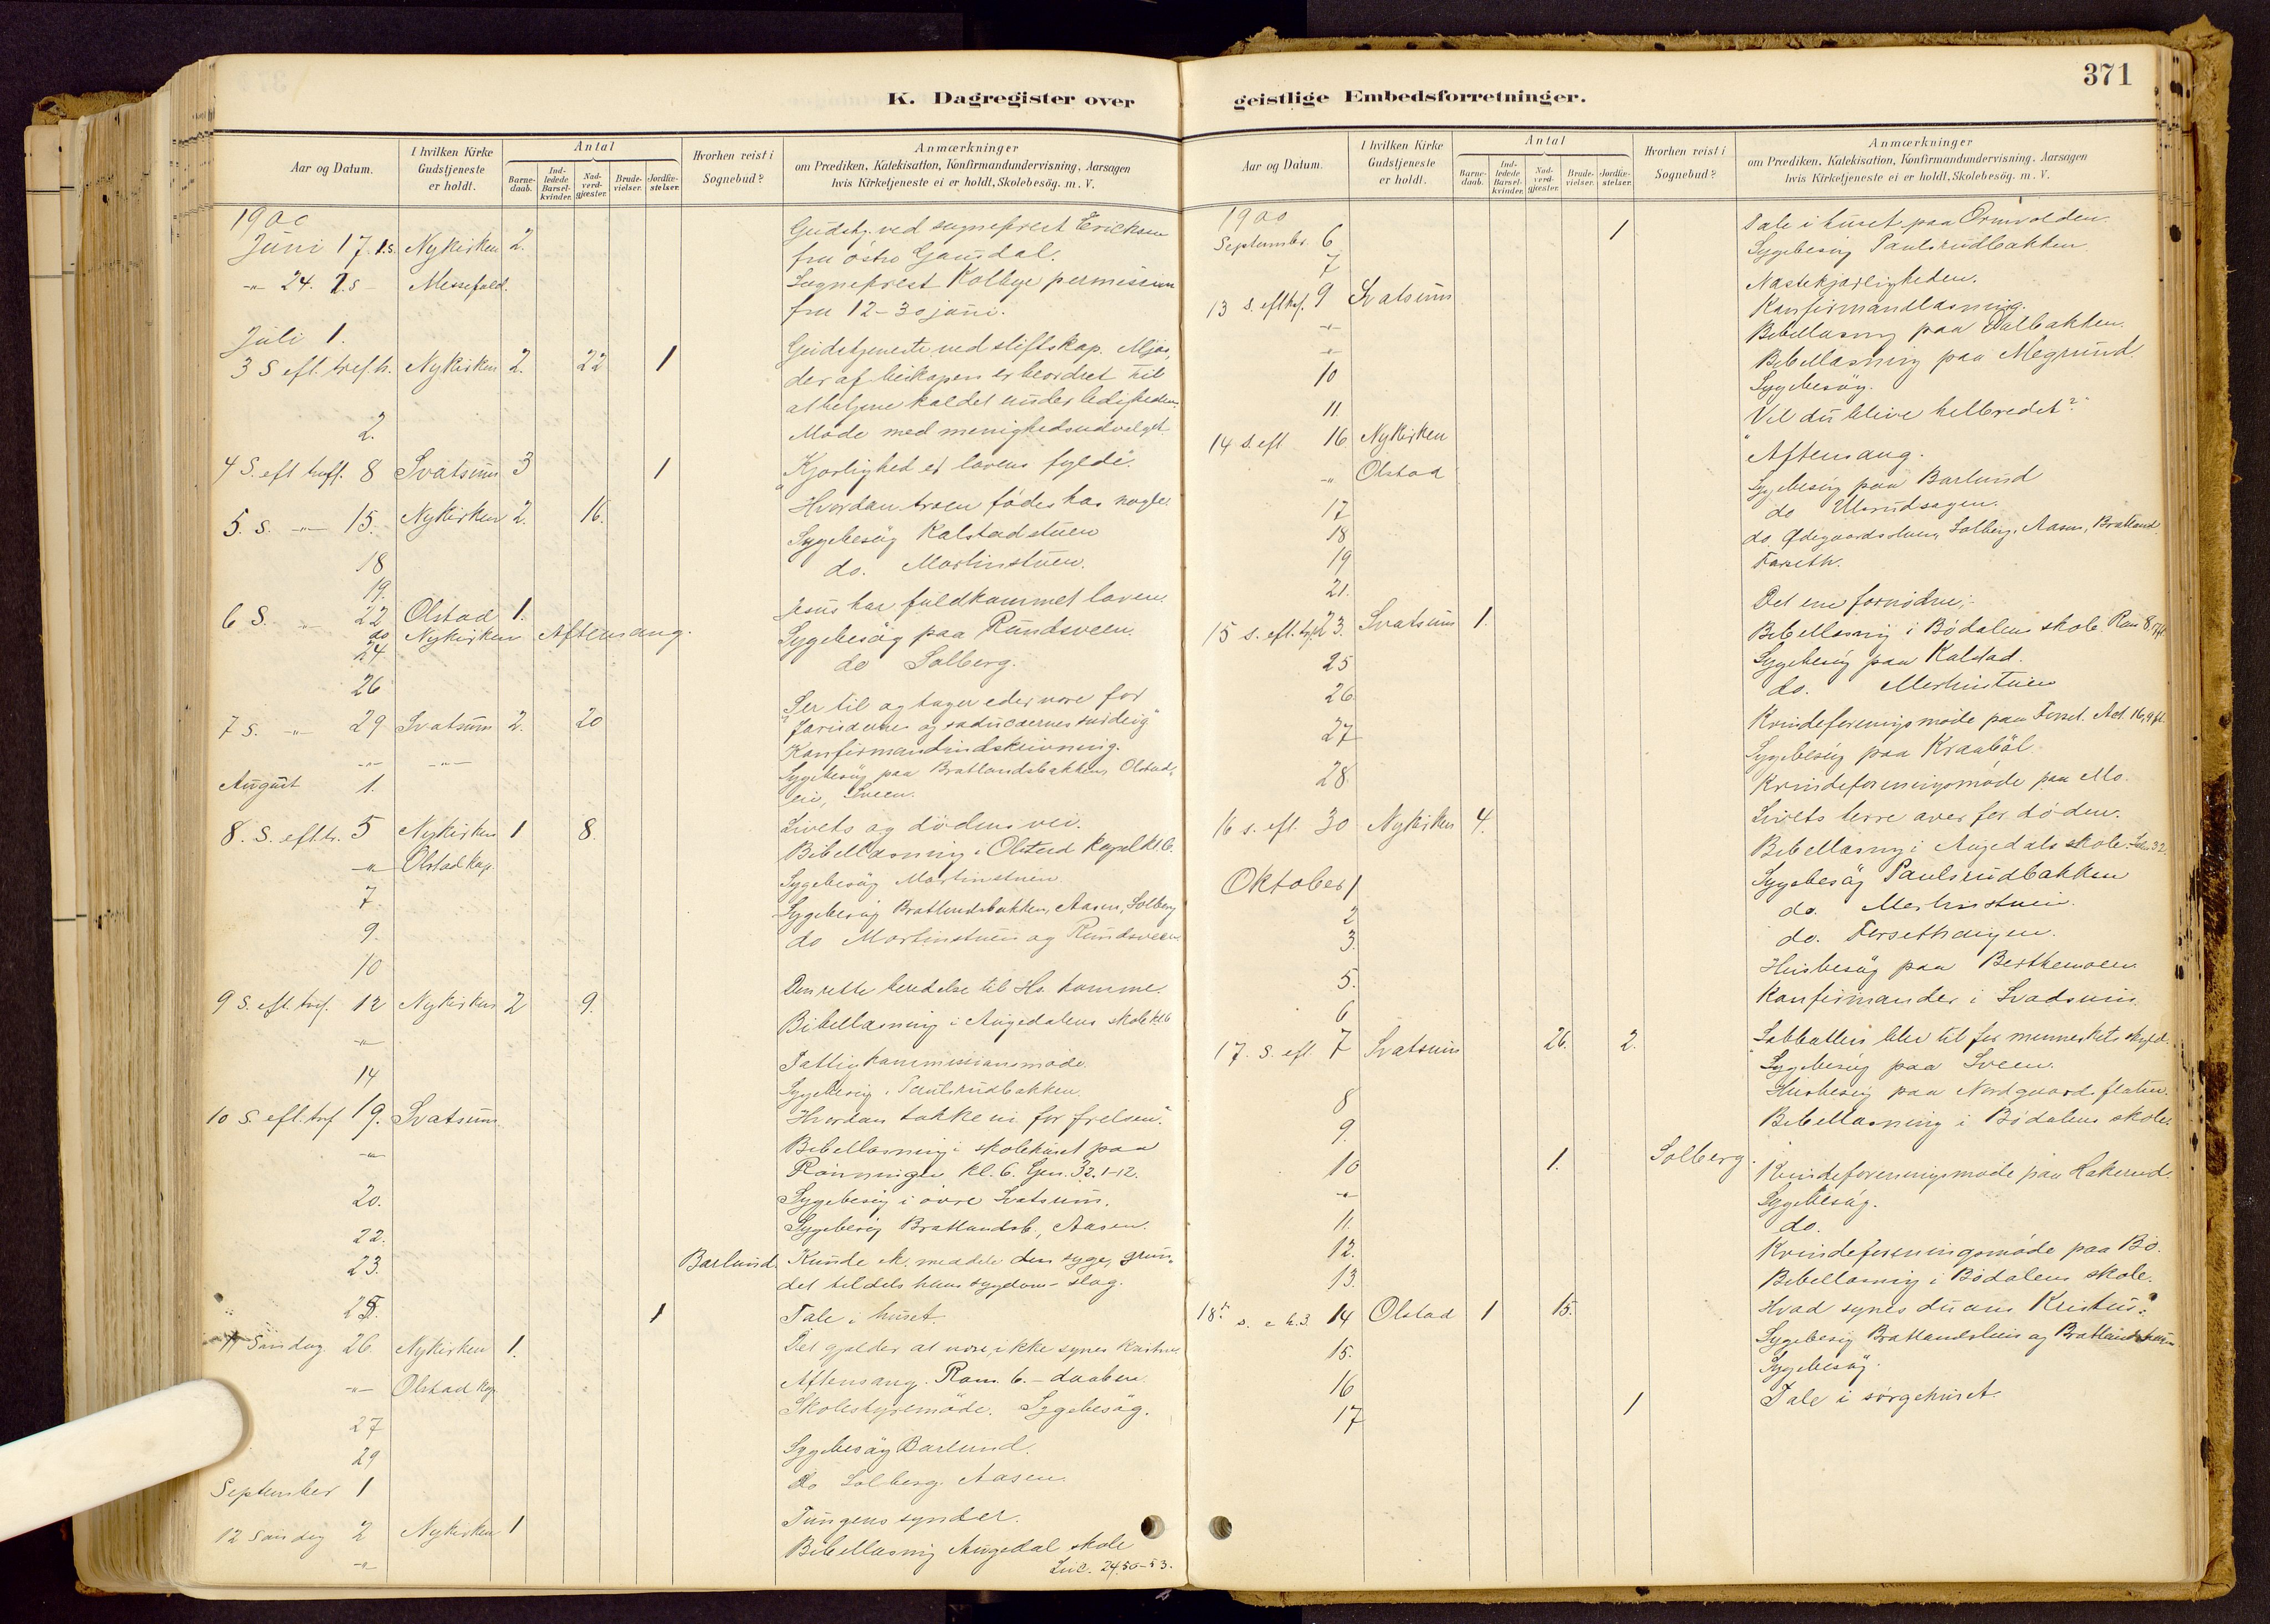 371
K. Dagregister over
geistlige Embedsforretninger.
Aar og Datum.
I hvilken Kirke Gudstjeneste er holdt.
Antal
Barnedaab.
Indledede Barselkvinder.
Nadverdgjester.
Brudevielser.
Jordfæstelser.
Hvorhen reist i Sognebud?
Anmærkninger
om Prædiken, Katekisation, Konfirmandundervisning, Aarsagen
hvis Kirketjeneste ei er holdt, Skolebesög. m. V.
1900
Juni 17. 1.s. Nykirken 2. Gudstj. ved sogneprest Ericksen
fra östre Gausdal.
-"- 24. 2.s Messefald. Sogneprest Kolbye permission
fra 12-30 juni.
Juli 1.
3 S eft. tref.h. Nykirken 2. 22 1 Gudstjeneste ved stiftskap. Mjøs,
der af biskopen er beordret til
at betjene kaldet under ledigheden.
2. Møde med menighedsudvalget.
4 S. eft treff. 8 Svatsum 3 1 "Kjærlighed er lovens fylde".
5. S. -"- 15. Nykirken 2. 16. Hvordan troen fødes hos nogle.
18 Sygebesög Kalstadstuen
19. do. Martinstuen.
6 S. " 22 Olstad 1. Jesus har fuldkommet loven.
do Nykirken Aftensang.
24 Sygebesög paa Rundsveen.
26 do Solberg.
7 S. -"- 29 Svatsum 2. 20 Ser til og tager eder vare for
"farisæernes og sadducæernes surdeig"
-"- -"- Konfirmandindskrivning.
August 1. Sygebesög paa Bratlandsbakken, Olstad-
eie, Sveen.
8. S. eft tr. 5 Nykirken 1 8. Livets og dödens vei.
-"- Olstad kap. Bibellæsning i Olstad kapel kl 6.
7. Sygebesög Martinstuen
9. Sygebesög Bratlandsbakken, Aasen, Solberg
10 do Martinstuen og Rundsveen
9 S. eft. tref. 12 Nykirken 2 9. Den rette beredelse til Hs. komme.
-"- Bibellæsning i Augedalens skole kl 6
14 Fattigkommissionsmøde.
Sygebesög i Paulsrudbakken
10 S. eft. tref 19. Svatsum. Hvordan takke vi for frelsen".
-"- Bibellæsning i skolehuset paa
Rönningen kl. 6. Gen. 32. 1-12.
20. Sygebesög i övre Svatsum.
22. Sygebesög Bratlandsb., Aasen.
23. Barlund. Kunde ik. meddele den syge, grun-
det tildels hans sygdom - slag.
25. 1 Tale i huset.
11 Söndag 26. Nykirken 1. Det gjælder at være, ikke synes kristne
-"- Olstad kap. Aftensang. Rom. 6. - daaben.
27 Skolestyremöde. Sygebesög.
29 Sygebesög Barlund.
September 1 Do Solberg. Aasen.
12 Söndag 2 Nykirken 1 Tungens synder.
-"- Bibellæsning Augedal skole
Luc. 24,50-53.
Aar og Datum.
I hvilken Kirke Gudstjeneste er holdt.
Antal
Barnedaab.
Indledede Barselkvinder.
Nadverdgjester.
Brudevielser.
Jordfæstelser.
Hvorhen reist i Sognebud?
Anmærkninger
om Prædiken, Katekisation, Konfirmandundervisning, Aarsagen
hvis Kirketjeneste ei er holdt, Skolebesög. m. V.
1900
September 6 1 Tale i huset paa Ormvolden.
7 Sygebesög Paulsrudbakken
13 S. eft tref. 9 Svatsum Næstekjærligheden.
Konfirmandlæsning.
-"- Bibellæsning paa Dalbakken.
-"- Bibellæsning paa Megrund.
10 Sygebesög.
11.
14 S. eft 16 Nykirken "Vil du blive helbredet?"
-"- Olstad Aftensang.
17 Sygebesög paa Barlund
18 do Ulsrudsagen.
19 do Ødegaardsstuen, Solberg, Aasen, Bratland
21. Forseth.
15 S. eft. tref. 23. Svatsum 1. Det ene fornødne;-
Bibellæsning i Bödalens skole. Rom 8,
25 Sygebesög paa Kalstad.
26 do. Merhinstuen
27 Kvindeforeningsmöde paa Act. 16, 9 ft.
28 Sygebesög paa Kraaböl.
Kvindeforeningsmöde paa Mo.
16 s. eft. 30 Nykirken 4. Livets herre over for döden.
Bibellæsning i Augedals skole. 32.
Oktober 1 Sygebesög Paulsrudbakken
2 do. Merhinstuen.
3. do. Forsethaugen.
5. Husbesög paa Berthemoen
6 Konfirmander i Svadsum.
17. S. eft. 7 Svatsum 26. 2. "Sabbatten blev til for menneskets skyld.
8 Sygebesög paa Sveen.
Husbesög paa Nordgaardsflaten.
9. Bibellæsning i Bödalens skole.
10 1. Solberg.
-"- Kvindeforeningsmöde paa Hakerud.
11. Sygebesög.
12. do.
13. Kvindeforeningsmöde paa Bö.
Bibellæsning i Bödalens skole.
18de s. e. h. 3. 14 Olstad 1 15. Hvad synes du om Kristus?
15. Sygebesög Bratlandsstuen og Bratlandshaugen
16 Sygebesög.
17 1 Tale i sörgehuset.